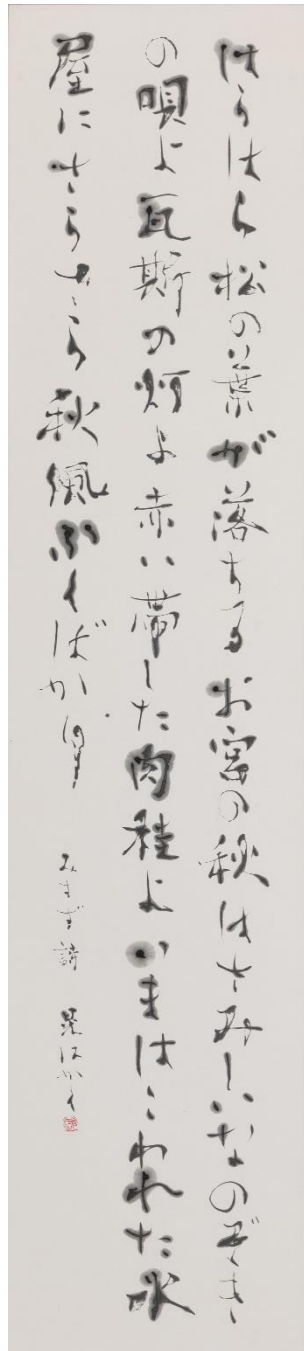 はらはら松の葉が落ちるお宮の秋はさみしいなのぞき
の唄よ瓦斯の灯よ赤い帯した肉桂よいまはこわれた氷
屋にさらさら秋風ふくばかり
みすゞ詩 かく